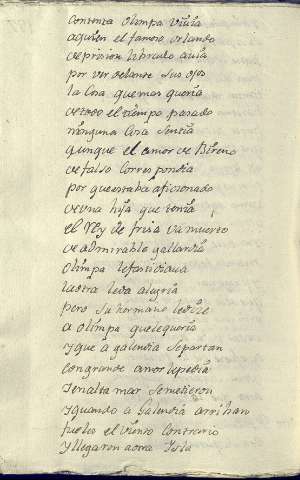 contenta olimpa viuia
aquien el famoso orlando
de prision libradо auia
por ver delante sus ojos
la cosa que mas queria
de todo el tiempo pasado
ninguna cosa sentia
aunque el amor de Bireno
de falso correspondia
por que estaba aficionado
de una hija que tenia
el Rey de frisa ya muerto
de admirable gallardia
olimpa le fastidiaua
la otra le da alegria
pero su hermano le dize
a olimpa que le queria
y que a gelandia se partan
con grande amor le pedia
en alta mar se metieron
y quando a Galandia arriban
fueles el viento contrario
y llegaron a otra Isla